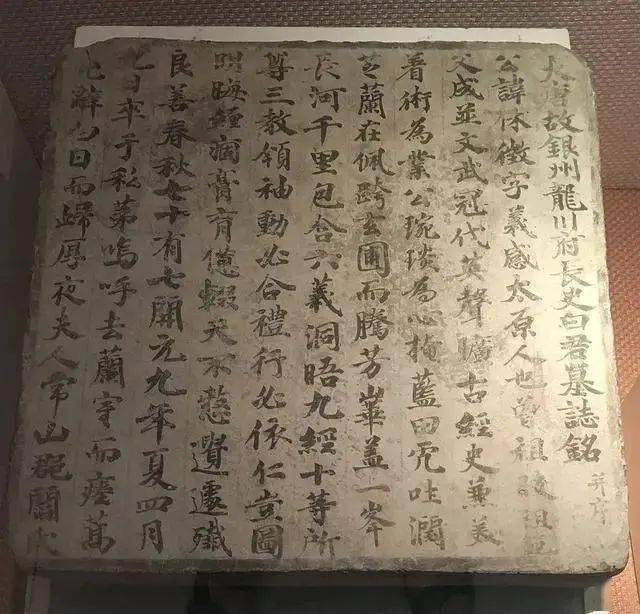 大唐故銀州龍川府長史白君墓誌銘 并序
公諱休徵字義感太原人也曾祖 祖
父成並文武冠代英聲曠古經史兼美
著術為業公琬琰為心掩藍田而吐潤
芝蘭在佩跨玄圃而騰芳崋盖一岑
長河千里包含六義洞晤九經十等所
尊三教領袖動必合禮行必依仁豈圖
明晦纏痾膏肓僽輟天不慭遺遽殲
良善春秋七十有七開元九年夏四月
乙日卒于私第嗚呼去蘭宇而瘞萬
 辭白日而歸厚夜夫人常山郡閻氏